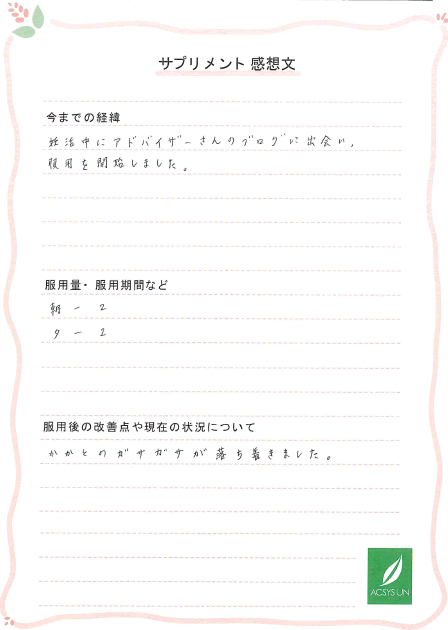 サプリメント 感想文
今までの経緯
妊活中にアドバイザーさんのブログに出会い、
服用を開始しました。
服用量・服用期間など
朝 ー 2
夕 ー 2
服用後の改善点や現在の状況について
かかとのガサガサが落ち着きました。
ACSYS UN